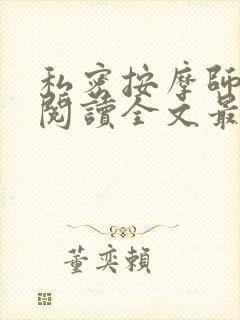 私密按摩師
閱讀全文最
董奕賴